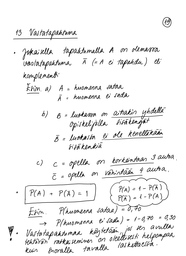 13 Vastatapahtuma
• Jokaisella tapahtumalla A on olemassa
vastatapahtuma Ā (= A ei tapahdu) eli
komplementti
Esim a) A = huomenna sataa
Ā = huomenna ei sada
b) B = luokassa on ainakin yhdellä
opiskelijalla
B̄ = luokassa ei ole kenelläkään
c) C = opella on korkeintaan 3 autoa
C̄ = opella on vähintään 4 autoa
P(A) + P(Ā) = 1
P(A) = 1 - P(Ā)
P(Ā) = 1 - P(A)
Esim P(huomenna sataa) = 0,70
→ P(huomenna ei sada) = 1 - 0,70 = 0,30
Vastatapahtumaa käytetään, jos sen avulla
tehtävän ratkaiseminen on oleellisesti helpompaa
kuin suoralla tavalla